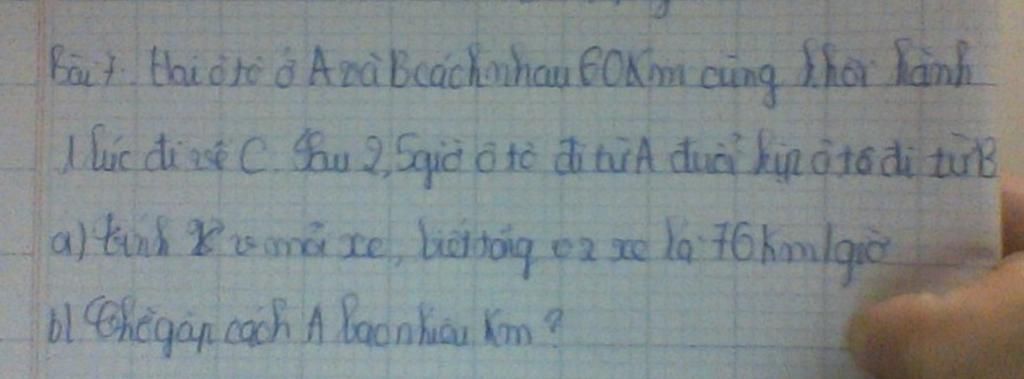 Bài 7. Hai ô tô ở A và B cách nhau 60Km cùng khởi hành
1 lúc đi về C. Sau 2,5giờ ô tô đi từ A đuổi kịp ô tô đi từ B
a) tính v mỗi xe, biết tổng v 2 xe là 76km/giờ
b) Chỗ gặp cách A bao nhiêu Km?